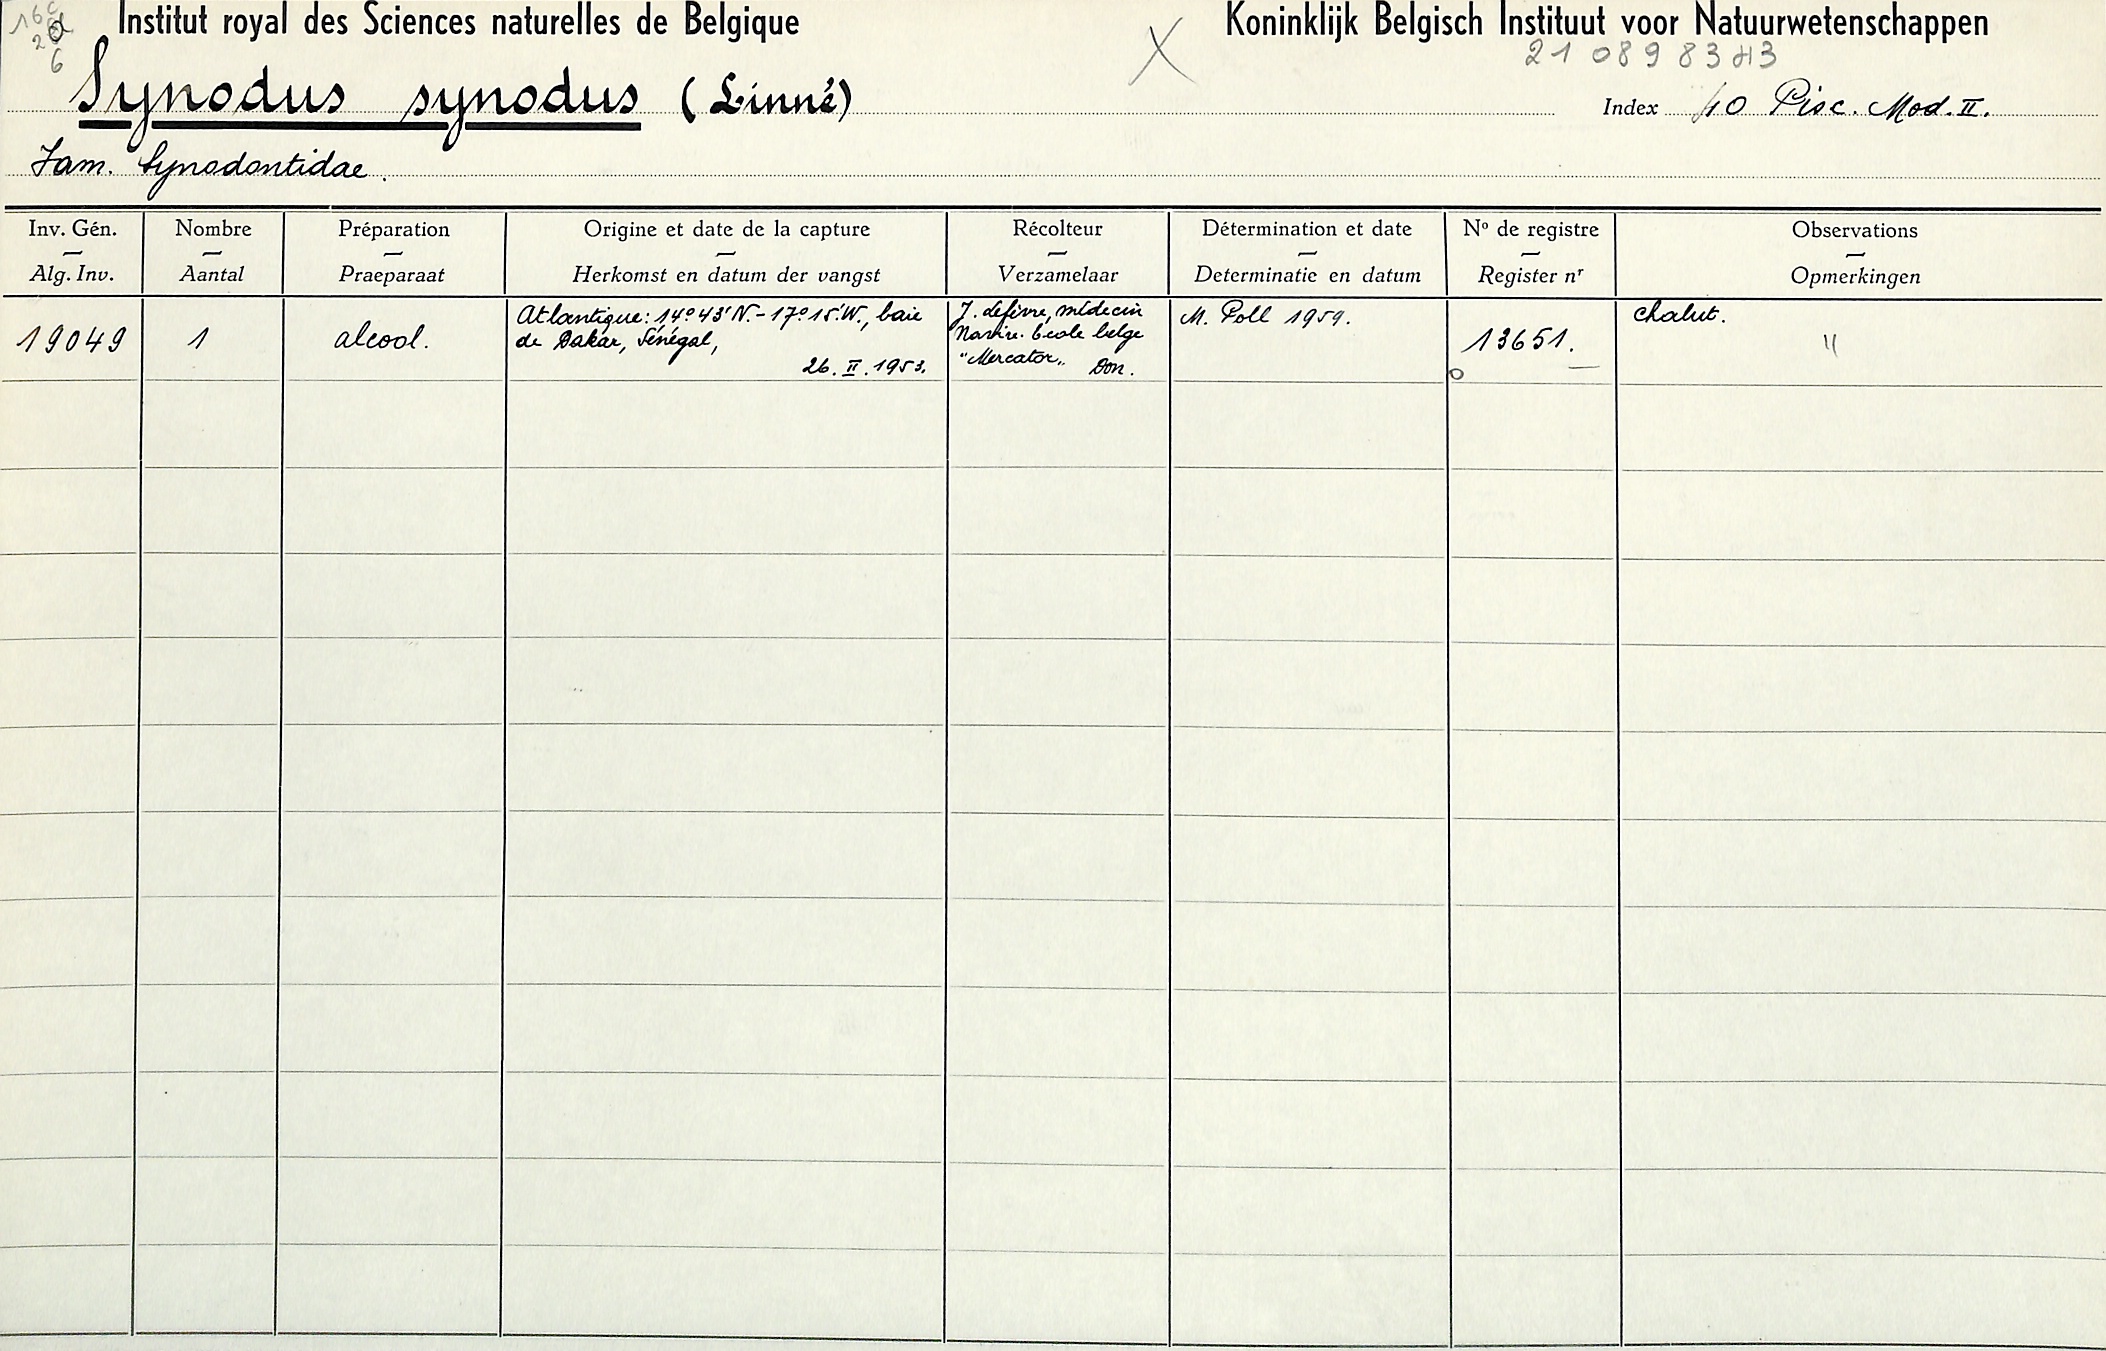 Institut royal des Sciences naturelles de Belgique
Koninklijk Belgisch Instituut voor Natuurwetenschappen
Synodus synodus (Linné)
Index 40 Pisc. Mod. II.
Fam. Synodontidae.
Inv. Gén. Nombre Préparation Origine et date de la capture Récolteur Détermination et date Nº de registre Observations
Alg. Inv. Aantal Praeparaat Herkomst en datum der vangst Verzamelaar Determinatie en datum Register nr Opmerkingen
19049
1
alcool.
Atlantique: 14º43'N.-17º15'W., baie
de Dakar, Sénégal,
26. II. 1953.
J. Lefèvre, médecin
Navire-École belge
"Mercator„ Don.
M. Poll 1959.
13651.
chalut.